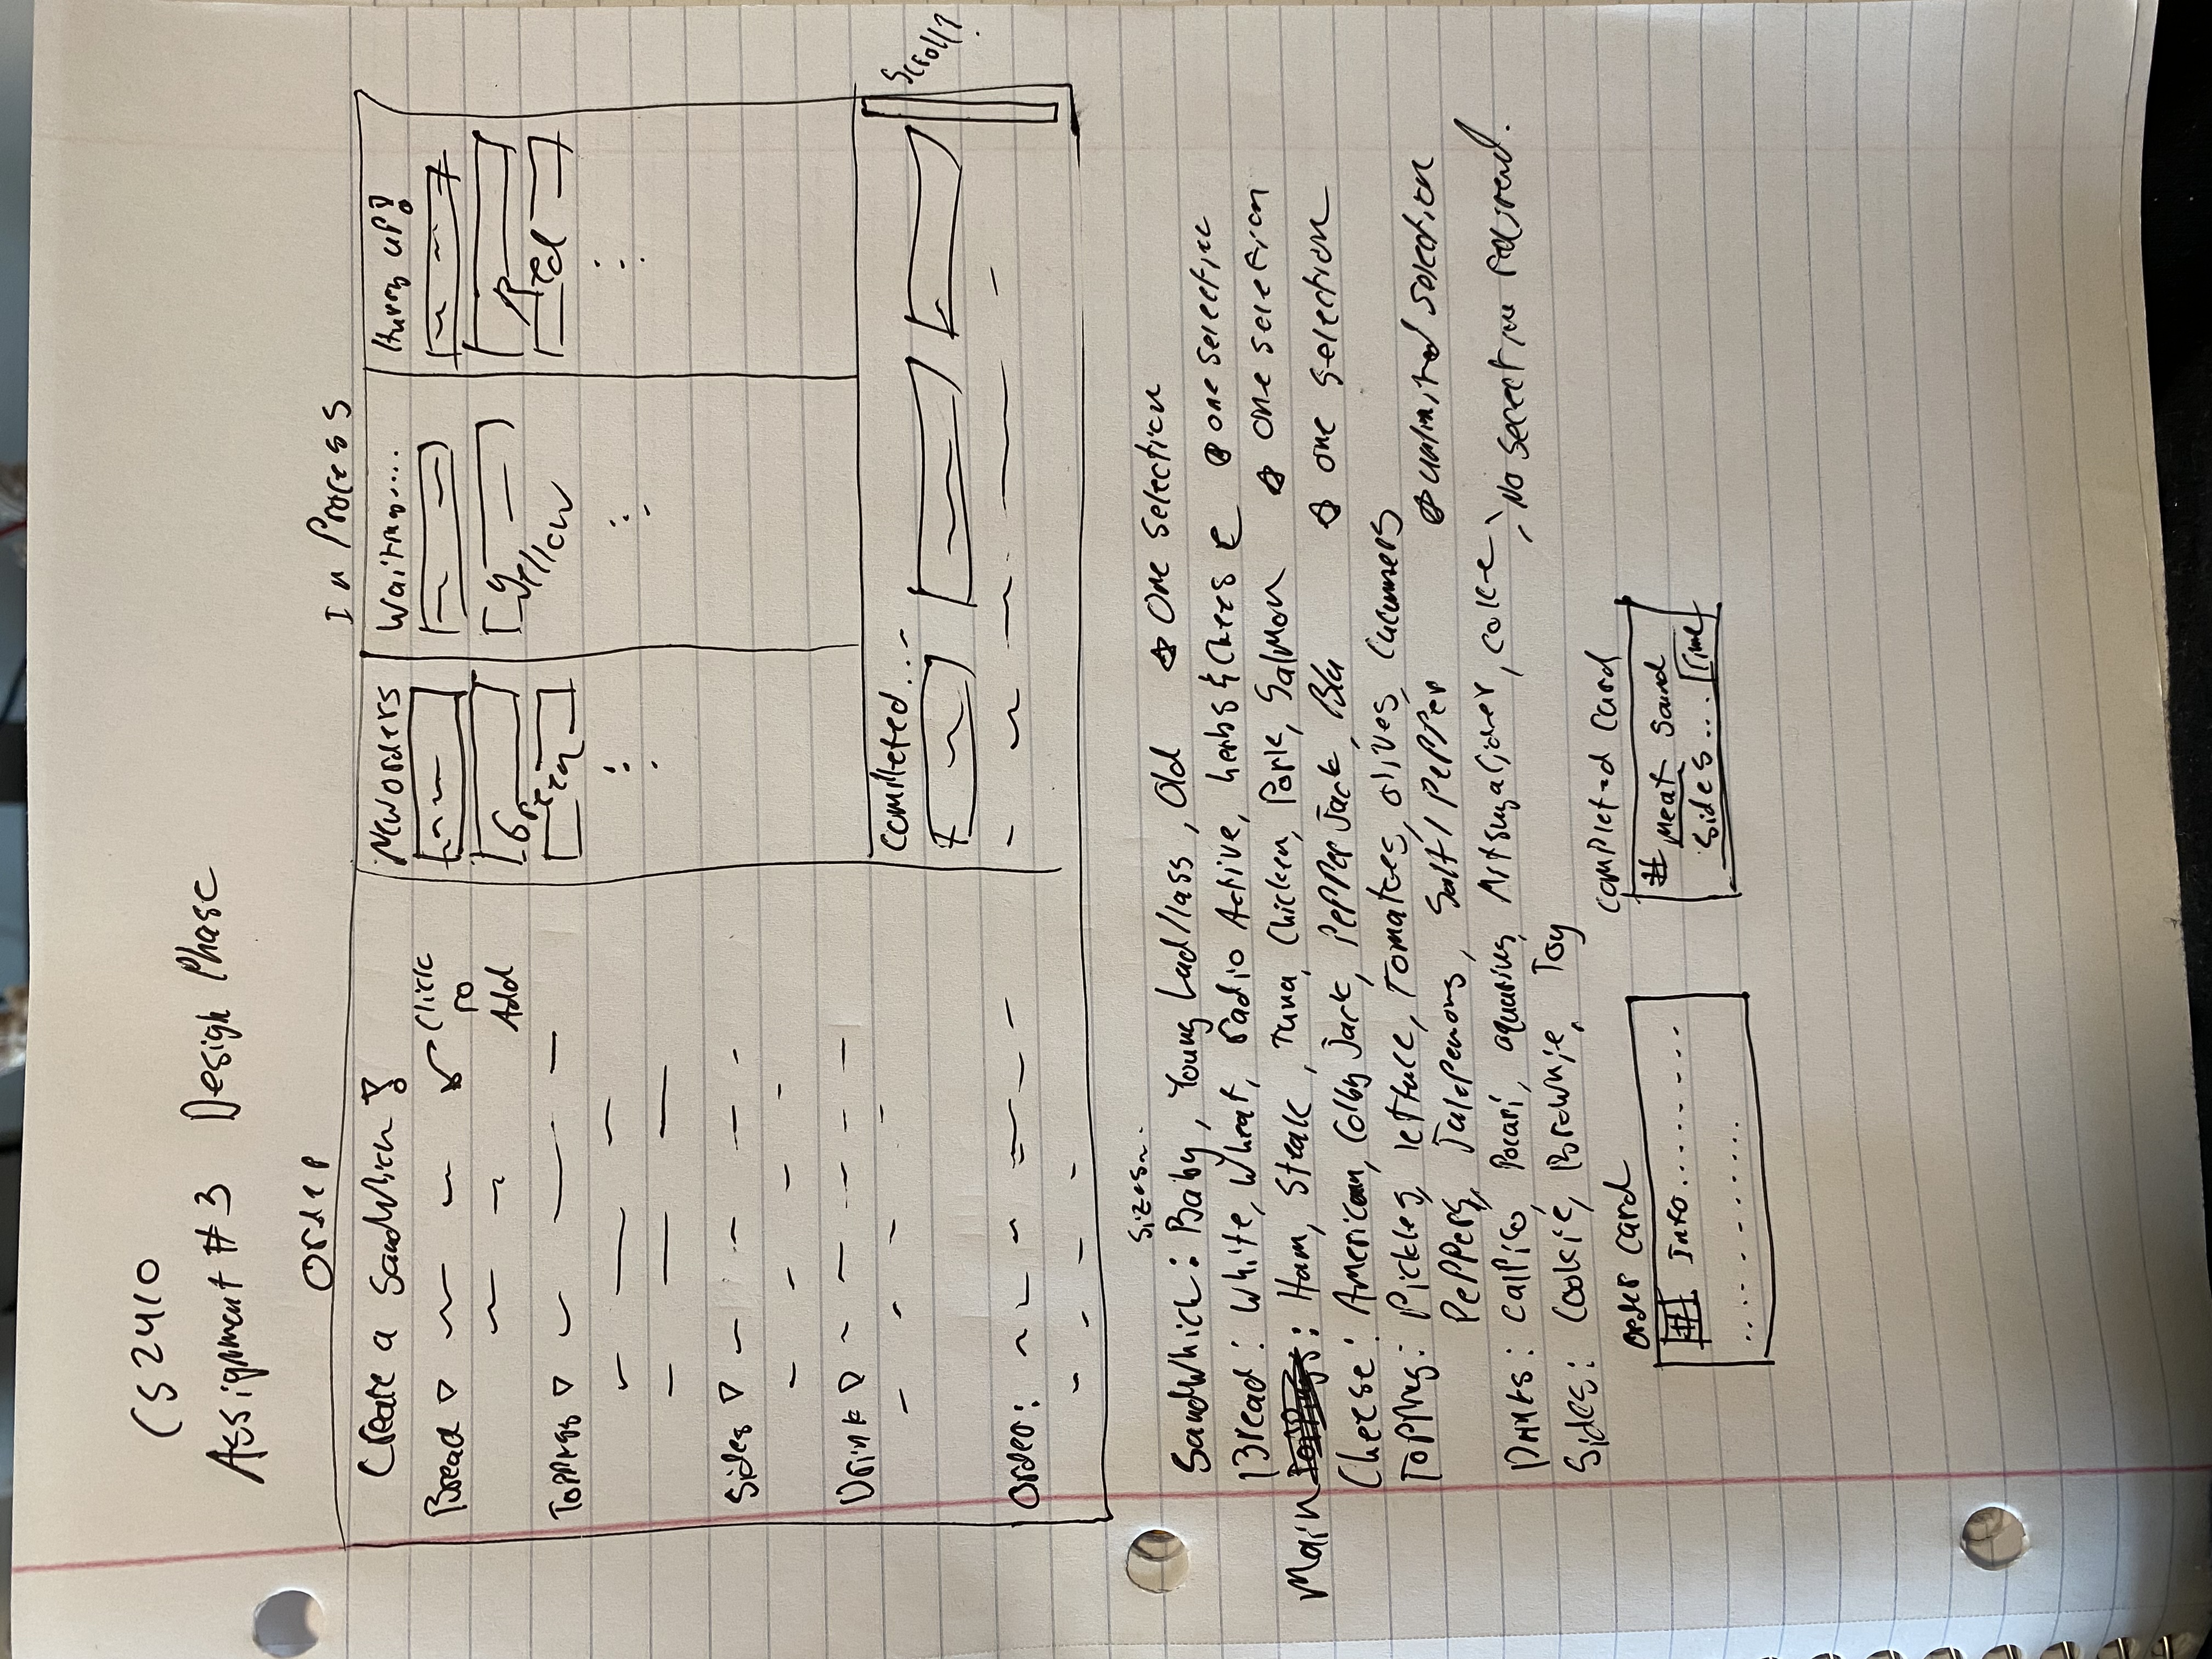 CS2410
Assignment #3 Design Phase
Order
In Process
Create a Sandwhich!
Bread
Click
to
Add
Toppings
Sides
Drink
Order:
New orders
Green
Waiting....
Yellow
Hurry up!
Red
Completed...
Scroll?
Sizes...
Sandwhich: Baby, Young Lad/lass, Old ☆ One Selection
Bread: White, Wheat, radio Active, herbs & Cheese ☆ one selection
Main: Ham, Steak, Tuna, Chicken, Pork, Salmon ☆ one selection
Cheese: American, Colby Jack, Pepper Jack, Blu ☆ one selection
Topping: Pickles, lettuce, Tomatoes, olives, Cucumbers
Peppers, Salt/Pepper ☆ unlimited selection
Drinks: Calpico, Pocari, aquarius, coke, No selection required.
Sides: Cookie, Brownie, Toy
order card
# Info........
............
completed card
# meat
sides... Time